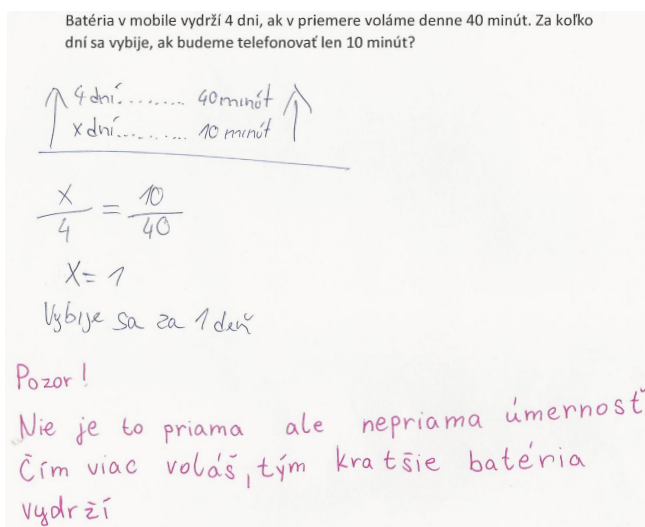 Batéria v mobile vydrží 4 dni, ak v priemere voláme denne 40 minút. Za koľko
dní sa vybije, ak budeme telefonovať len 10 minút?
4 dní......... 40 minút
x dní.......... 10 minút
x/4 = 10/40
X = 1
Vybije sa za 1 deň
Pozor!
Nie je to priama ale nepriama úmernosť
Čím viac voláš, tým kratšie batéria
vydrží